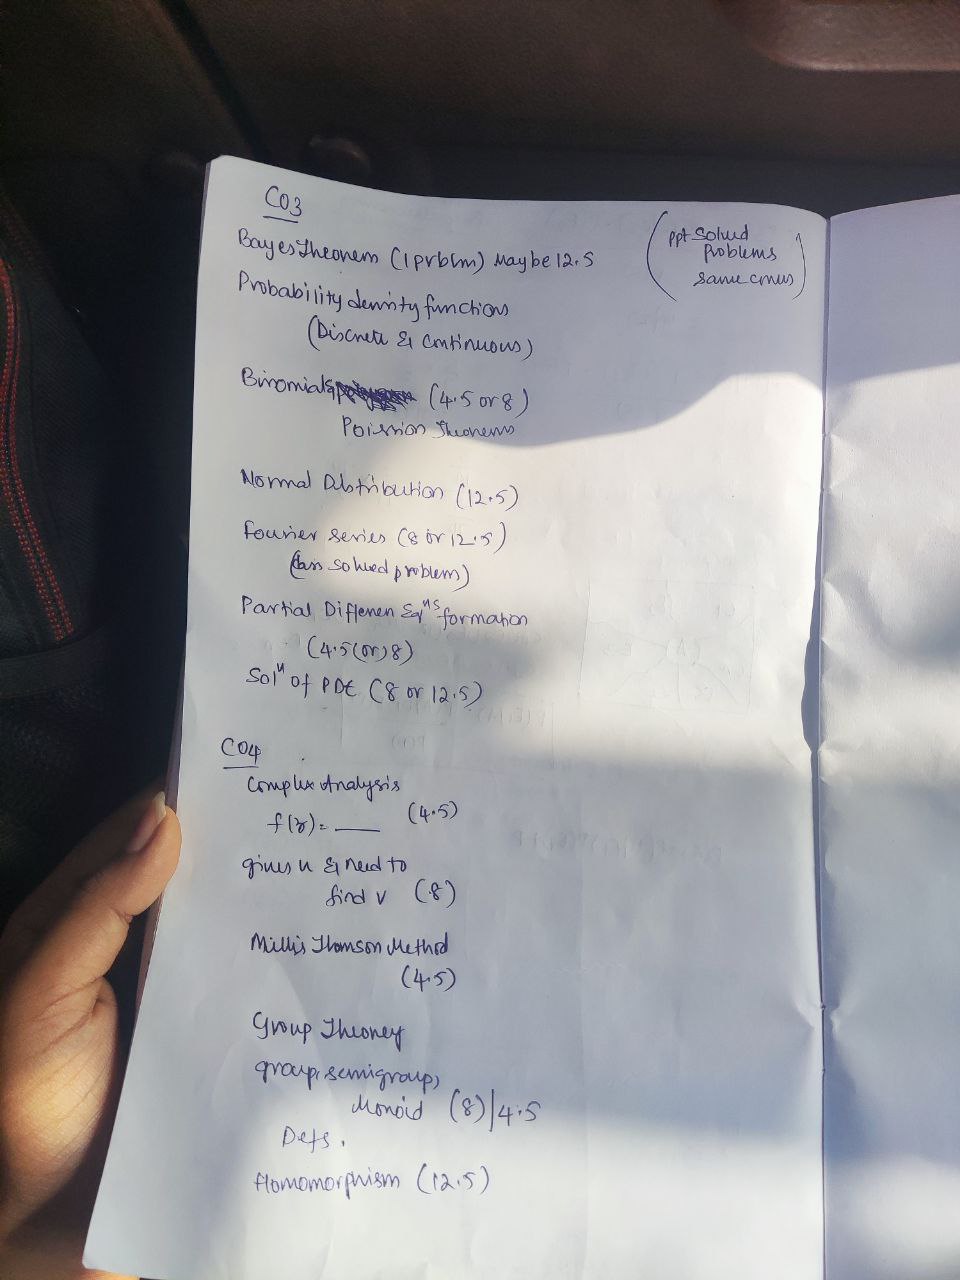 CO3
Bayes Theorem (1 prblm) Maybe 12.5
(ppt Solved
Problems
same cmus)
Probability density functions
(Discrete & Continuous)
Binomial & (4.5 or 8)
Poission Theorems
Normal Distribution (12.5)
Fourier series (8 or 12.5)
solved problem)
Partial Differen Eqⁿˢ formation
(4.5 (or) 8)
Solⁿ of PDE (8 or 12.5)
CO4
Complex Analysis
f(z) = ___ (4.5)
gives u & need to
find v (8)
Millis Thomson Method
(4.5)
Group Theorey
group, semigroup,
Monoid (8)|4.5
Defs.
Homomorphism (12.5)